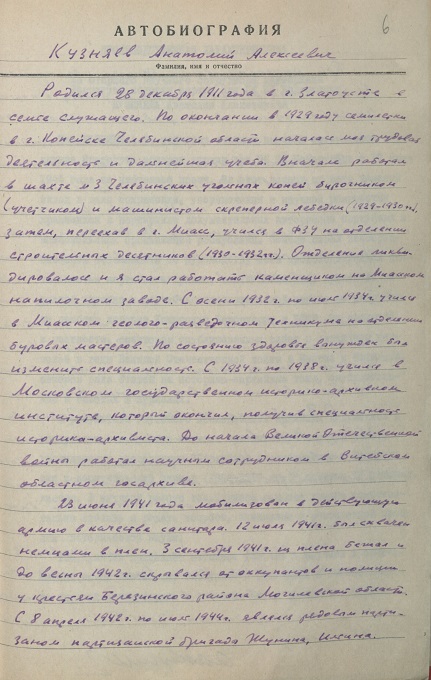 6
АВТОБИОГРАФИЯ
Кузняев Анатолий Алексеевич
Фамилия, имя и отчество
Родился 28 декабря 1911 года в г. Златоусте в
семье служащего. По окончании в 1929 году семилетки
в г. Копейске Челябинской области началась моя трудовая
деятельность и дальнейшая учеба. Вначале работал
в шахте №3 Челябинских угольных копей бирочником
(учетчиком) и машинистом скреперной лебедки (1929-1930 гг.),
затем, переехав в г. Миасс, учился в ФЗУ на отделении
строительных десятников (1930-1932 гг.). Отделение ликви-
дировалось и я стал работать каменщиком на Миасском
напилочном заводе. С осени 1932 г. по июль 1934 г. учился
в Миасском геолого-разведочном техникуме на отделении
буровых мастеров. По состоянию здоровья вынужден был
изменить специальность. С 1934 г. по 1938 г. учился в
Московском государственном историко-архивном
институте, который окончил, получив специальность
историка-архивиста. До начала Великой Отечественной
войны работал научным сотрудником в Витебском
областном госархиве.
23 июня 1941 года мобилизован в действующую
армию в качестве санитара. 12 июля 1941 г. был схвачен
немцами в плен. 3 сентября 1941 г. из плена бежал и
до весны 1942 г. скрывался от оккупантов и полиции
у крестьян Березинского района Могилевской области.
С 8 апреля 1942 г. по июль 1944 г. являлся рядовым парти-
заном партизанской бригады Жунина, Ильина.